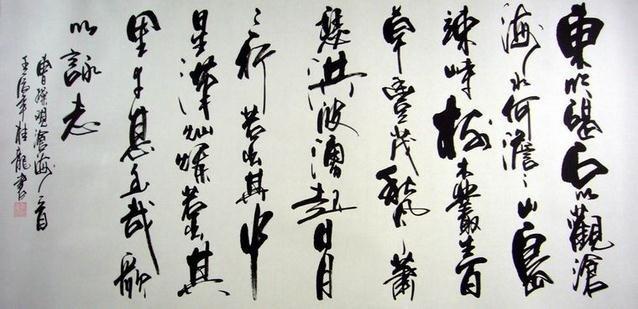 東臨碣石以觀滄
海水何澹〻山島
竦峙樹木叢生百
草豐茂秋風蕭
瑟洪波湧起日月
之行若出其中
星漢燦爛若出其
里幸甚至哉歌
以詠志
曹操觀滄海一首
年桂龍書